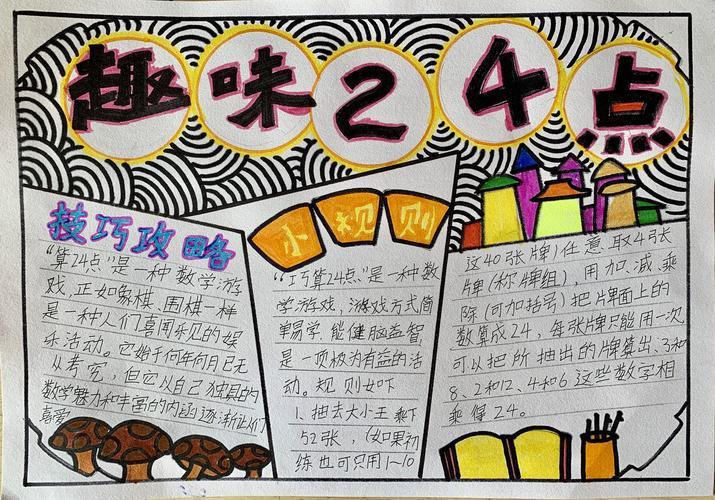 趣味24点
技巧攻略
“算24点”是一种数学游
戏,正如象棋、围棋一样
是一种人们喜闻乐见的娱
乐活动。它始于何年何月已无
从考究,但它以自己独具的
数学魅力和丰富的内涵逐渐让人们
喜爱
小规则
“巧算24点”是一种数
学游戏,游戏方式简
单易学能健脑益智,
是一项极为有益的活
动。规则如下
1、抽去大小王剩下
52张,(如果初
练也可只用1~10
这40张牌)任意取4张
牌(称牌组),用加、减、乘
除(可加括号)把牌面上的
数算成24,每张牌只能用一次
可以把所抽出的牌算出、3和
8、2和12、4和6这些数字相
乘得24。